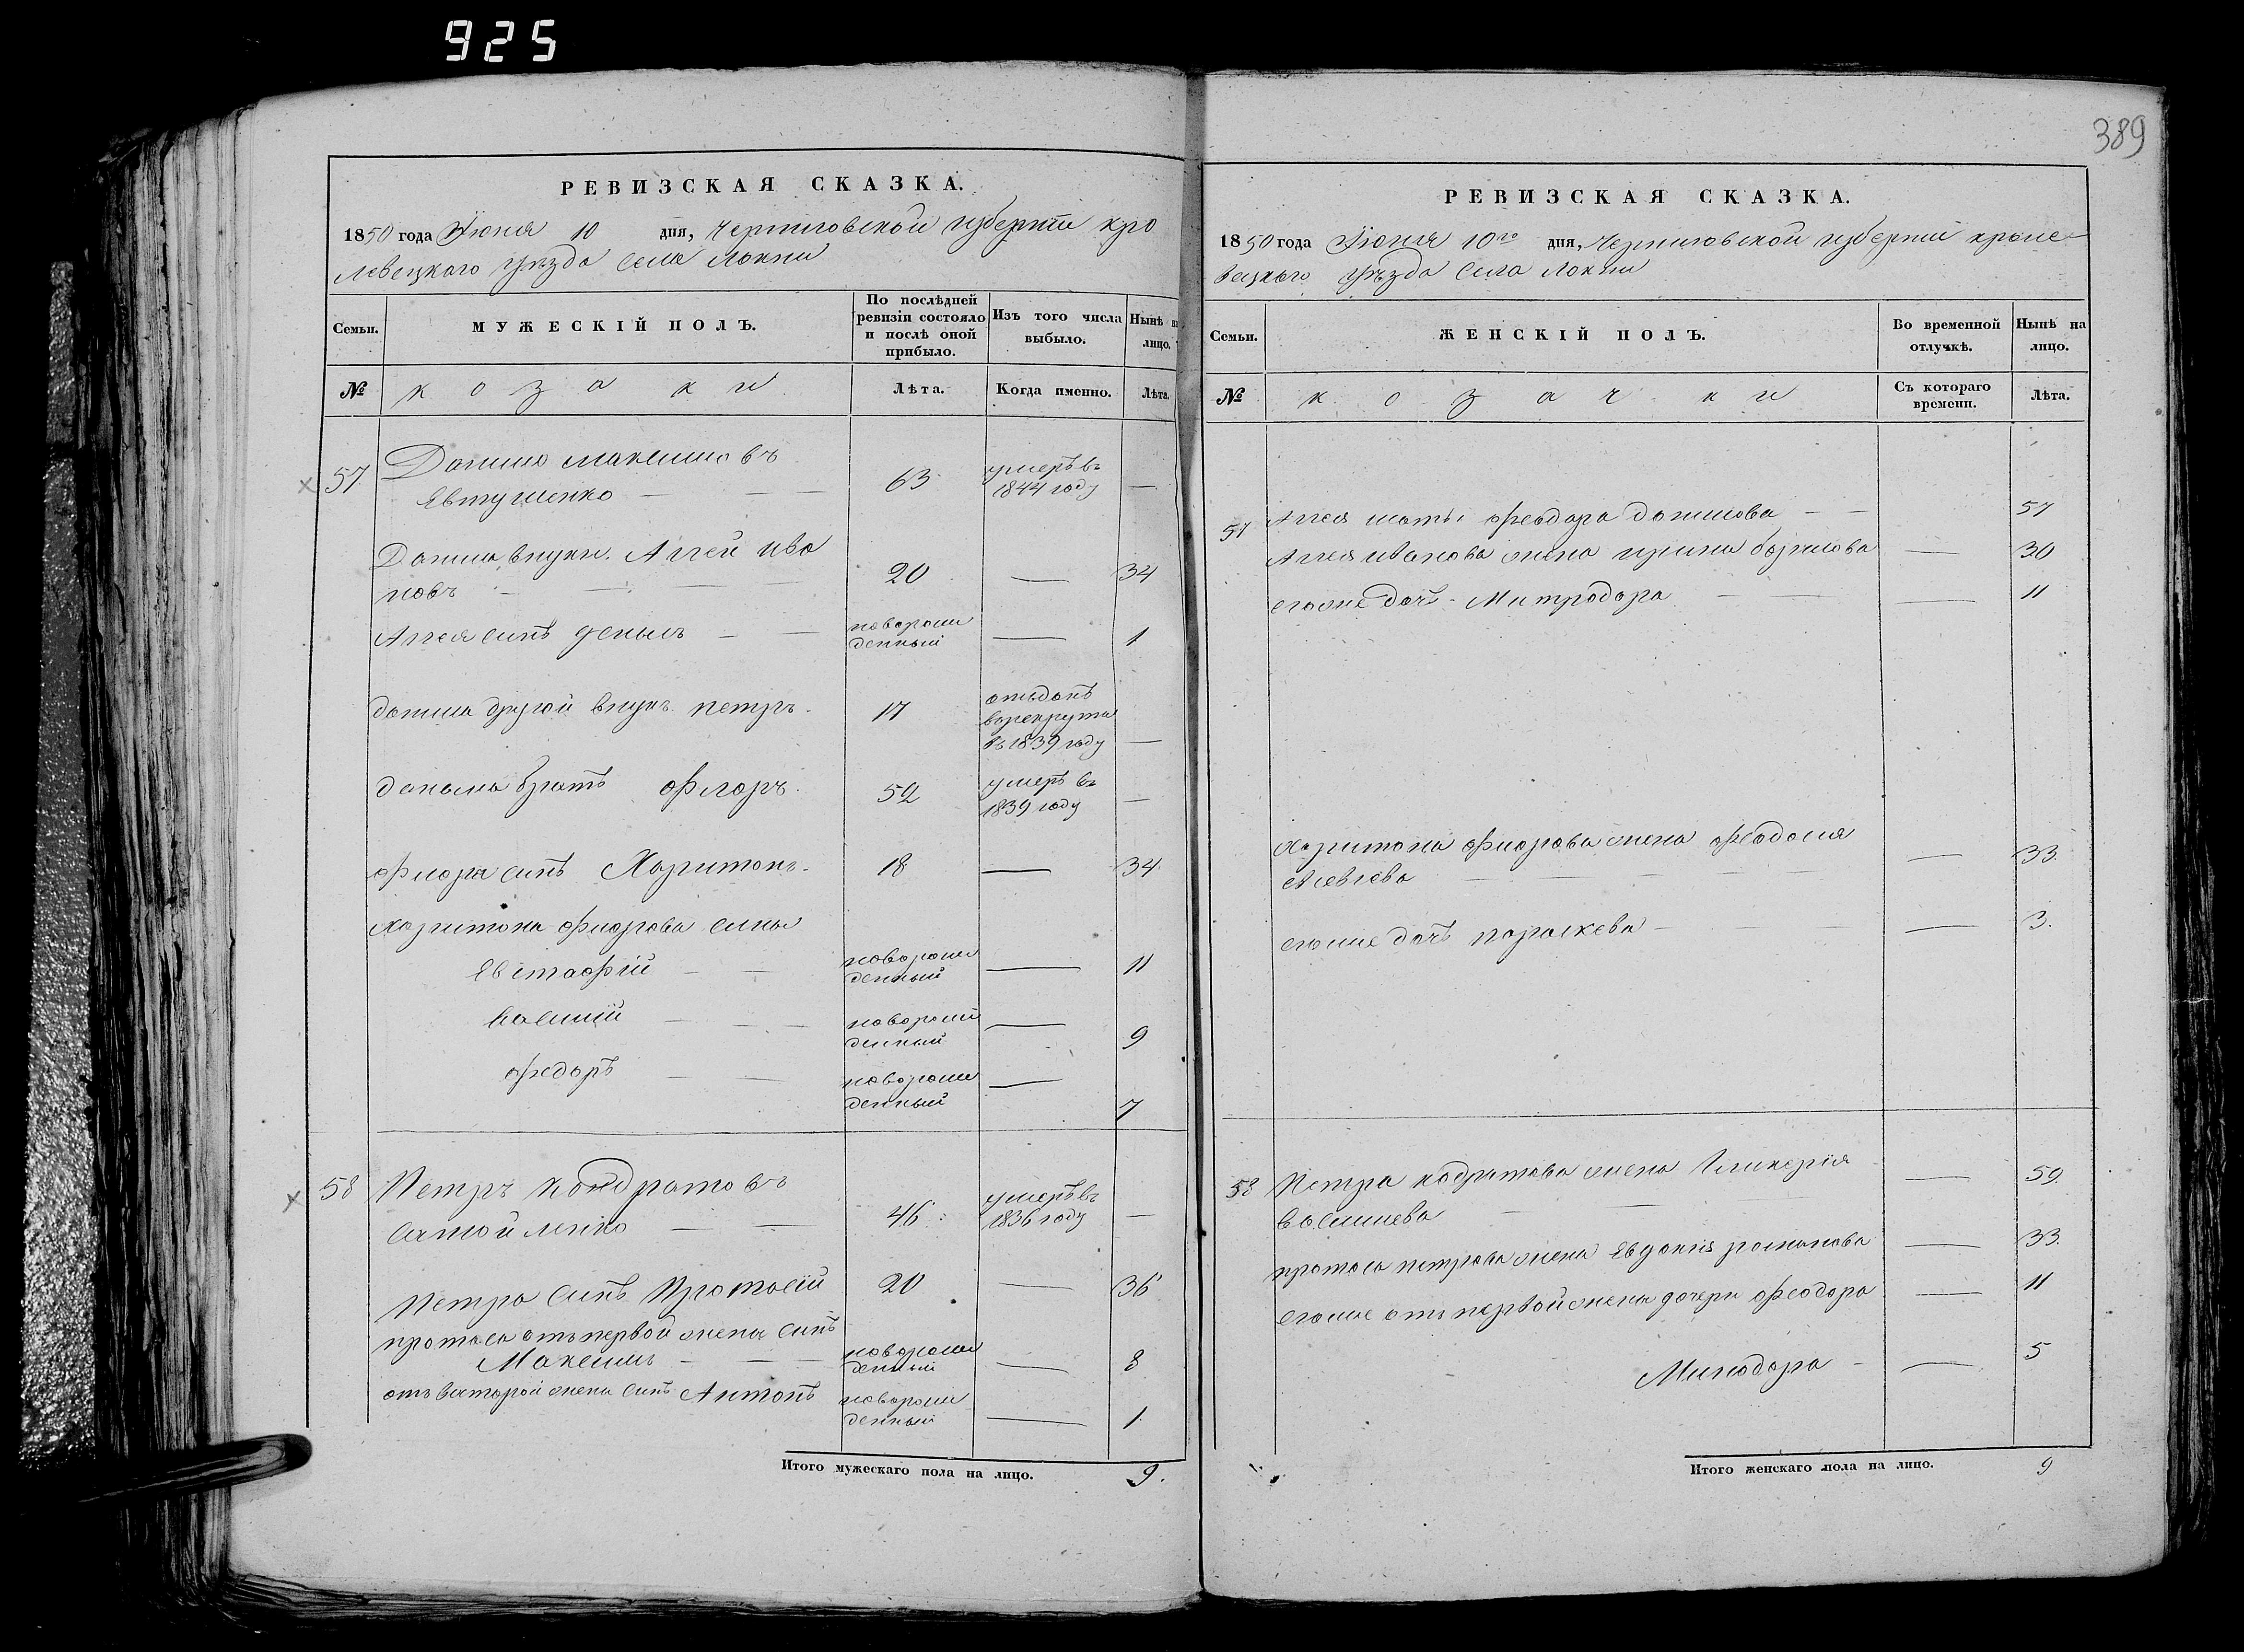 925
389
РЕВИЗСКАЯ СКАЗКА.
1850 года Июня 10 дня, Черниговской губернии кро
левецкого уѣзда села Локни
Семьи.
МУЖЕСКІЙ ПОЛЪ.
По послѣдней ревизіи состояло и послѣ оной прибыло.
Изъ того числа выбыло.
Нынѣ на лицо.
№
козаки
Лѣта.
Когда именно.
Лѣта.
57 Данило Максимовъ
Евтушенко 63 умеръ въ 1844 году —
Данила внукъ. Аггей ива
новъ 20 — 34
Аггея синъ Данилъ новорожденный — 1
Данила другой внукъ петръ. 17 отъданъ в рекруты въ 1839 году —
Данила братъ Флоръ. 52 умеръ въ 1839 году —
Флора синъ Харитонъ. 18 — 34
Харитона Флорова сины
Евстафій новорожденный — 11
Василій новорожденный — 9
Федоръ новорожденный — 7
58 Петръ Кондратовъ
Самойленко 46 умеръ въ 1836 году —
Петра синъ Протасій 20 — 36
протаса отъ первой жены синъ
Максимъ новорожденный — 8
отъ второй жены синъ Антонъ новорожденный — 1
Итого мужескаго пола на лицо. 9.
РЕВИЗСКАЯ СКАЗКА.
1850 года Июня 10го дня, Черниговской губерний кроле-
вецкого уѣзда Села Локни
Семьи.
ЖЕНСКІЙ ПОЛЪ.
Во временной отлучкѣ.
Нынѣ на лицо.
№
козачки
Съ котораго времени.
Лѣта.
57 Аггея мать феодора данилова — 57
Аггея иванова жена ирина — 30
егоже дочь Митродора — 11
Харитона Флорова жена феодосия — 33.
егоже дочь параскева — 3.
58 Петра кодратова жена Гликерія
василиева — 59.
протаса петрова жена Евдокия романова — 33.
егоже отъ первой жены дочери феодора — 11
Минодора — 5
Итого женскаго пола на лицо. 9